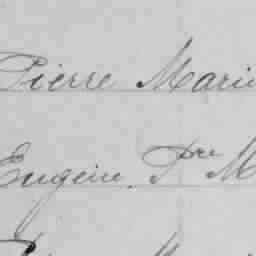 Pierre Marie
Eugène. Pre M